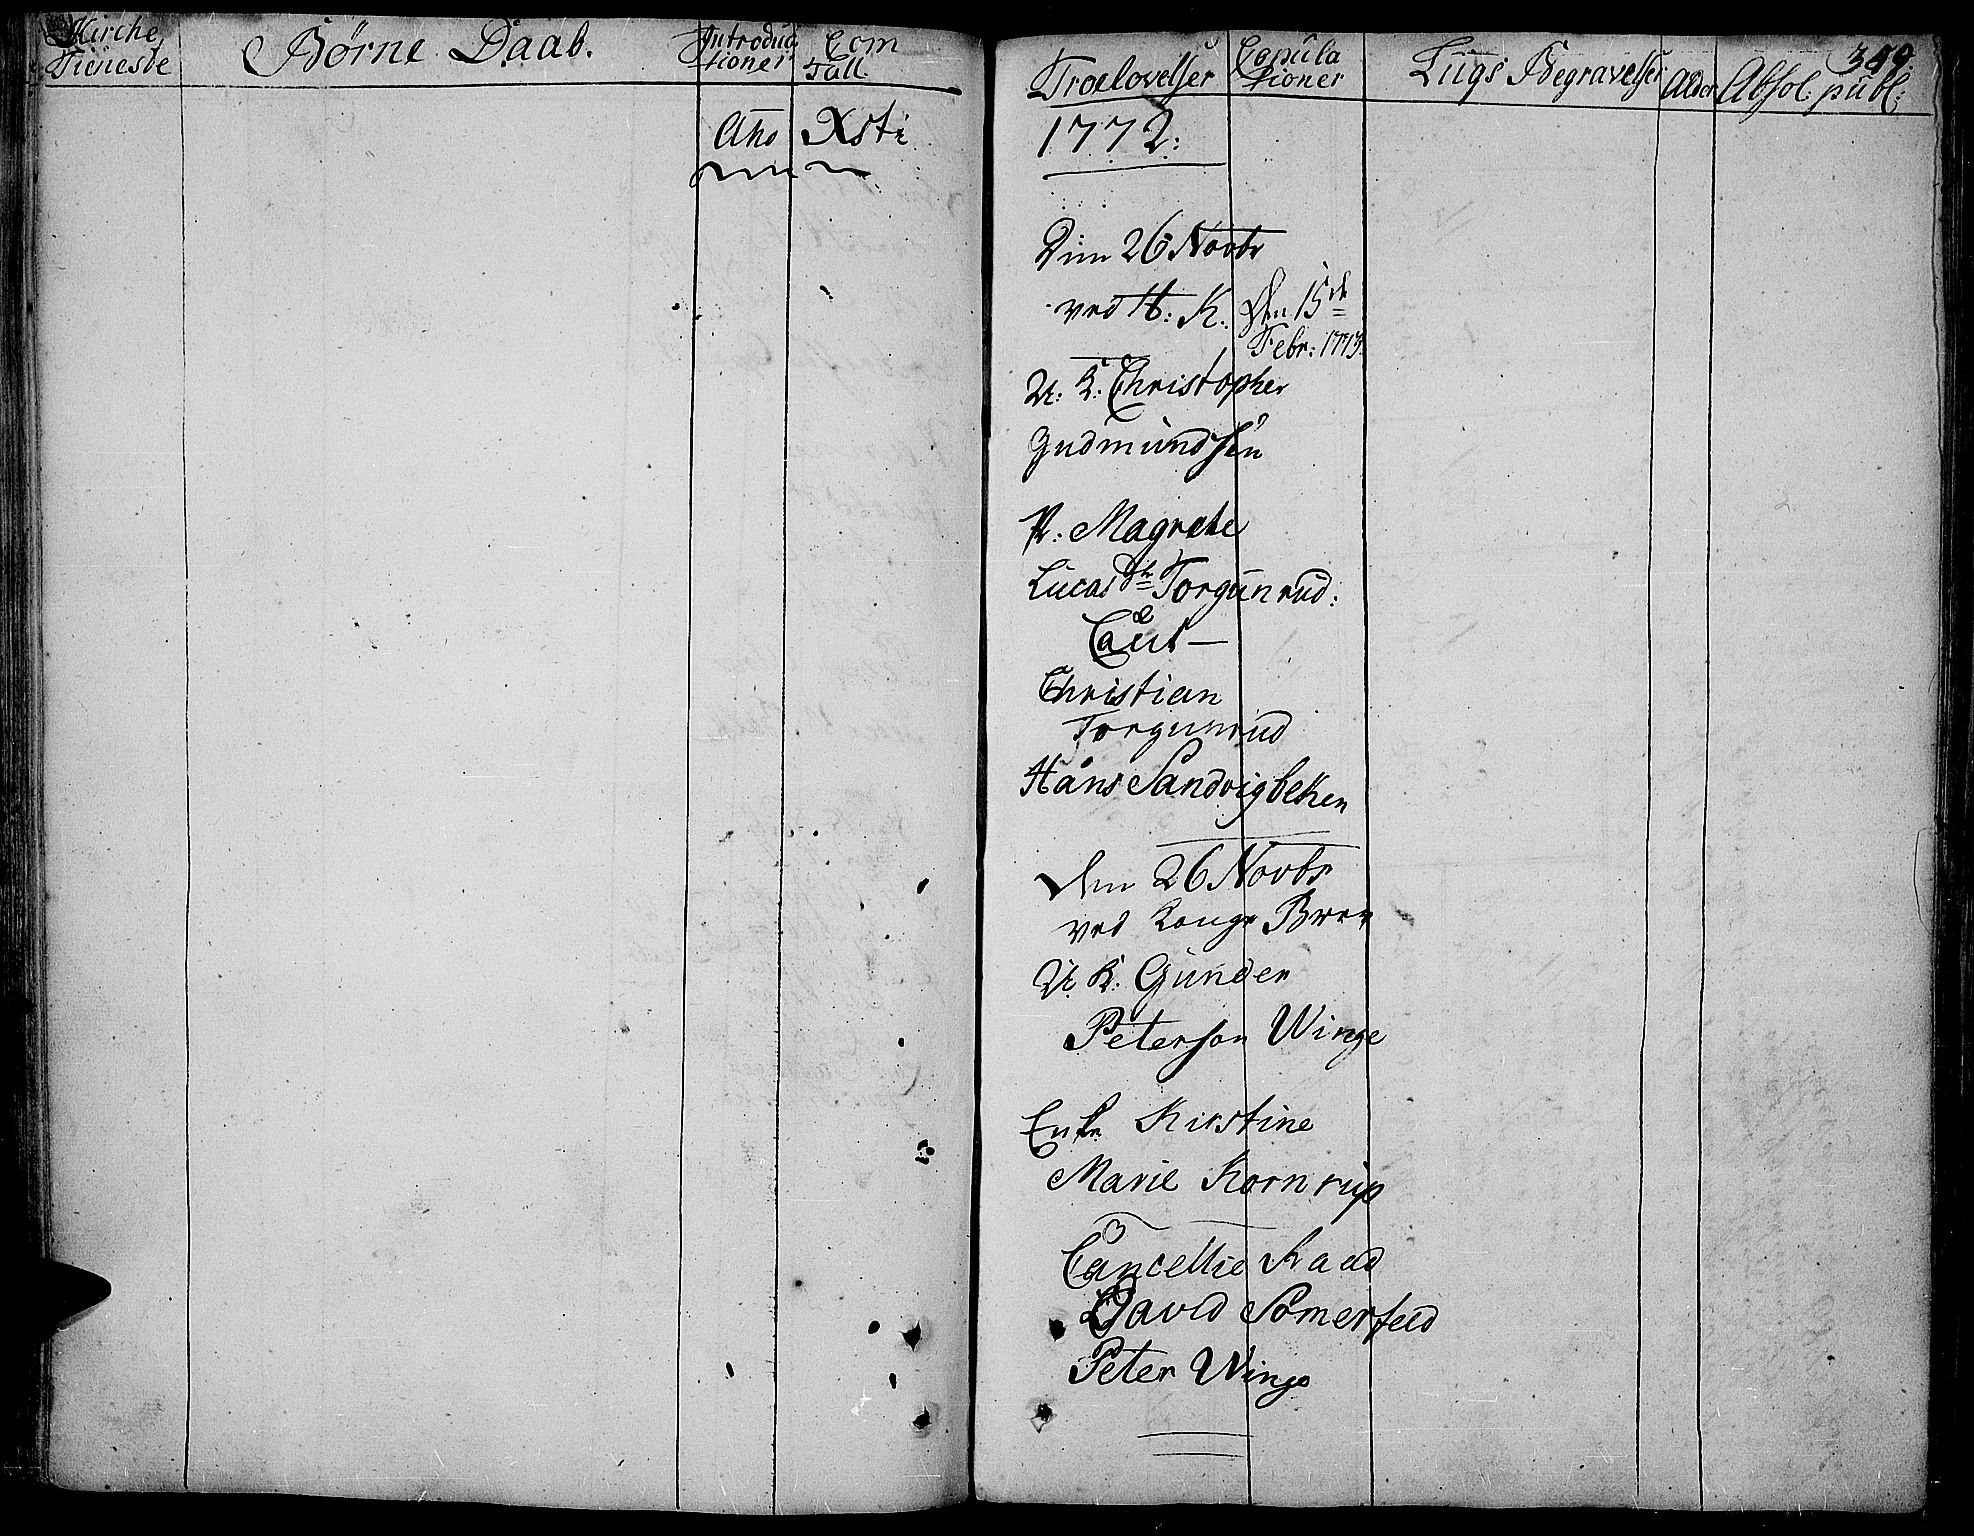 Kirche Tieneste
Børne Daab.
Introduc tioner
Com Tall.
Troelovelser
Copula tioner
Liigs Begravelser
Alder
Absol: publ:
Año Xsti
1772:
Dim 26 Novbr
ved H: K:
Den 15de
Febr: 1773.
U: K: Christopher
Gudmundsen
P: Magrete
Lucas Dr Torgunrud:
Caut
Christian
Torgunrud
Hans Sandvigbeken
Den 26 Novbr
ved Konge Brev
U. K: Gunder
Peterson Winge
Enke Kirstine
Marie Kornrup
Cancellie Raad
David Somerfeld
Peter Winge